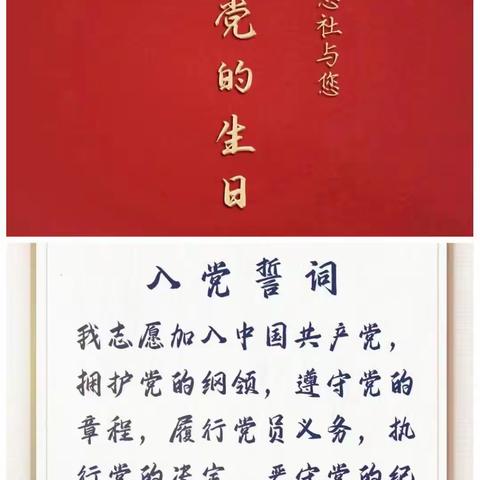 党的生日
社与您
入党誓词
我志愿加入中国共产党，
拥护党的纲领，遵守党的
章程，履行党员义务，执
行党的决定，严守党的纪